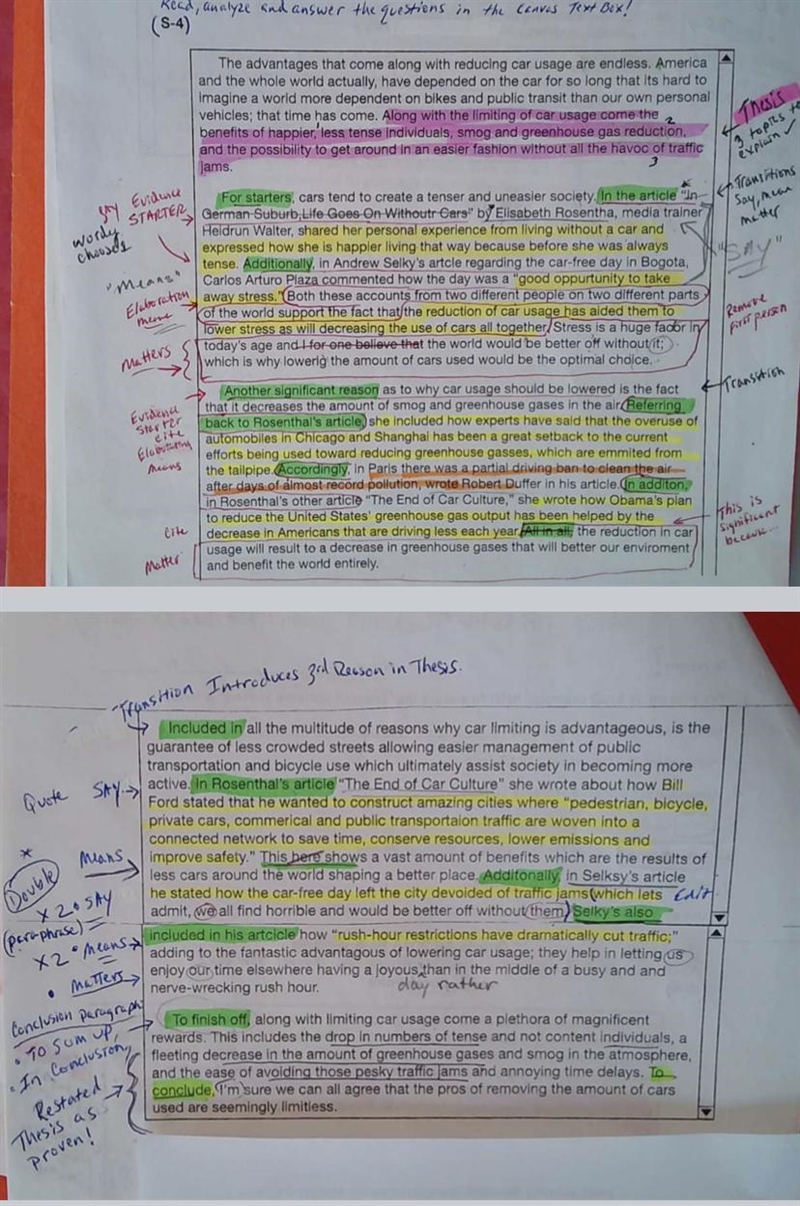 Read, analyze and answer the questions in the Canvas Text Box!
(S-4)
The advantages that come along with reducing car usage are endless. America
and the whole world actually, have depended on the car for so long that its hard to
imagine a world more dependent on bikes and public transit than our own personal
vehicles; that time has come. Along with the limiting of car usage come the 2
benefits of happier, 1 less tense individuals, smog and greenhouse gas reduction,
and the possibility to get around in an easier fashion without all the havoc of traffic
3
jams.
Thesis
3 topics to
explain ✓
For starters, cars tend to create a tenser and uneasier society. In the article "In
German Suburb,Life Goes On Withoutr Cars" by Elisabeth Rosentha, media trainer
Heidrun Walter, shared her personal experience from living without a car and
expressed how she is happier living that way because before she was always
tense. Additionally, in Andrew Selky's artcle regarding the car-free day in Bogota,
Carlos Arturo Plaza commented how the day was a "good oppurtunity to take
away stress." Both these accounts from two different people on two different parts
of the world support the fact that the reduction of car usage has aided them to
lower stress as will decreasing the use of cars all together. Stress is a huge facor in
today's age and I for one believe that the world would be better off without it;
which is why lowerig the amount of cars used would be the optimal choice.
Say Evidence
STARTER
wordy
chooses
"Means"
Elaboration
means
Matters
Transitions
Say, mean
matter
"SAY"
Remove
first person
Another significant reason as to why car usage should be lowered is the fact
that it decreases the amount of smog and greenhouse gases in the air. Referring
back to Rosenthal's article, she included how experts have said that the overuse of
automobiles in Chicago and Shanghai has been a great setback to the current
efforts being used toward reducing greenhouse gasses, which are emmited from
the tailpipe. Accordingly, in Paris there was a partial driving ban to clean the air
after days of almost record pollution, wrote Robert Duffer in his article. In additon,
in Rosenthal's other article "The End of Car Culture," she wrote how Obama's plan
to reduce the United States' greenhouse gas output has been helped by the
decrease in Americans that are driving less each year. All in all, the reduction in car
usage will result to a decrease in greenhouse gases that will better our enviroment
and benefit the world entirely.
Transition
Evidence
starter
cite
Elaborating
Means
cite
Matter
This is
significant
because...
Transition Introduces 3rd Reason in Thesis.
Included in all the multitude of reasons why car limiting is advantageous, is the
guarantee of less crowded streets allowing easier management of public
transportation and bicycle use which ultimately assist society in becoming more
active. In Rosenthal's article "The End of Car Culture" she wrote about how Bill
Ford stated that he wanted to construct amazing cities where "pedestrian, bicycle,
private cars, commerical and public transportaion traffic are woven into a
connected network to save time, conserve resources, lower emissions and
improve safety." This here shows a vast amount of benefits which are the results of
less cars around the world shaping a better place. Additonally, in Selksy's article
he stated how the car-free day left the city devoided of traffic jams (which lets edit
admit, we all find horrible and would be better off without them.) Selky's also
included in his artcicle how "rush-hour restrictions have dramatically cut traffic;"
adding to the fantastic advantagous of lowering car usage; they help in letting us
enjoy our time elsewhere having a joyous than in the middle of a busy and and
day rather
nerve-wrecking rush hour.
Quote SAY
Means
Double
x 2 • SAY
(paraphrase)
x 2 • Means
• Matters
To finish off, along with limiting car usage come a plethora of magnificent
rewards. This includes the drop in numbers of tense and not content individuals, a
fleeting decrease in the amount of greenhouse gases and smog in the atmosphere,
and the ease of avoiding those pesky traffic jams and annoying time delays. To
conclude, I'm sure we can all agree that the pros of removing the amount of cars
used are seemingly limitless.
Conclusion paragraph
• To sum up,
• In Conclusion,
Restated
Thesis as
proven!